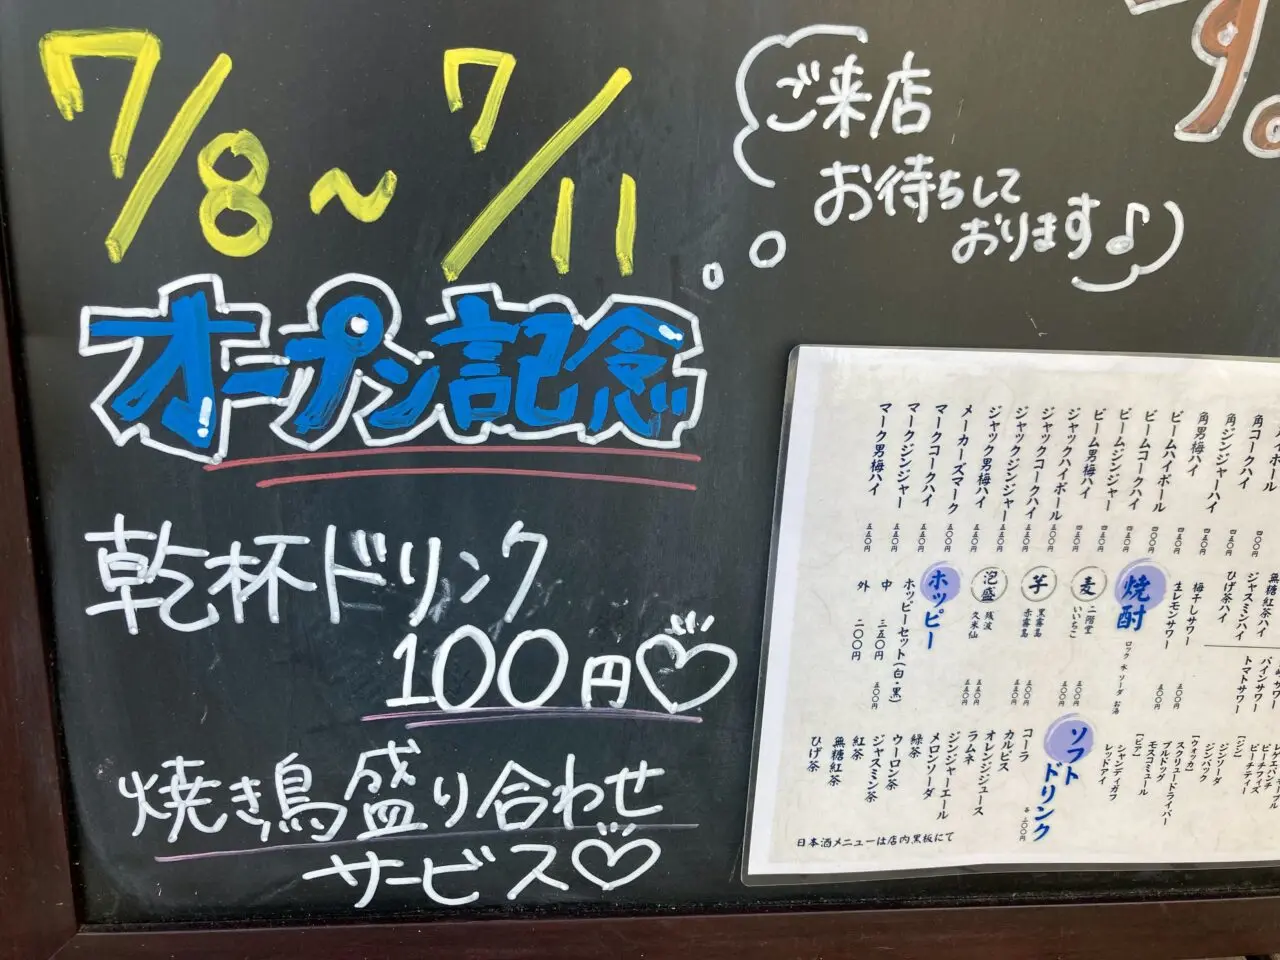 7/8~7/11
オープン記念
乾杯ドリンク
100円
焼き鳥盛り合わせ
サービス
ご来店
お待ちして
おります♪
す。
角コークハイ
角ジンジャーハイ
角男梅ハイ
ビームハイボール
ビームコークハイ
ビームジンジャー
ビーム男梅ハイ
ジャックハイボール
ジャックコークハイ
ジャックジンジャー
ジャック男梅ハイ
メーカーズマーク
マークコークハイ
マークジンジャー
マーク男梅ハイ
無糖紅茶ハイ
ジャスミンハイ
ひげ茶ハイ
梅干しサワー
生レモンサワー
パインサワー
トマトサワー
焼酎
ロック 水 ソーダ お湯
麦
二階堂
いいちこ
芋
黒霧島
赤霧島
泡盛
残波
久米仙
ホッピー
ホッピーセット(白・黒)
中 三五0円
外 二00円
[ジン]
ジンソーダ
ジンバック
[ウォッカ]
スクリュードライバー
ブルドッグ
モスコミュール
[ビア]
シャンディガフ
レッドアイ
ソフトドリンク
コーラ
カルピス
オレンジジュース
ラムネ
ジンジャーエール
メロンソーダ
緑茶
ウーロン茶
ジャスミン茶
紅茶
無糖紅茶
ひげ茶
日本酒メニューは店内黒板にて